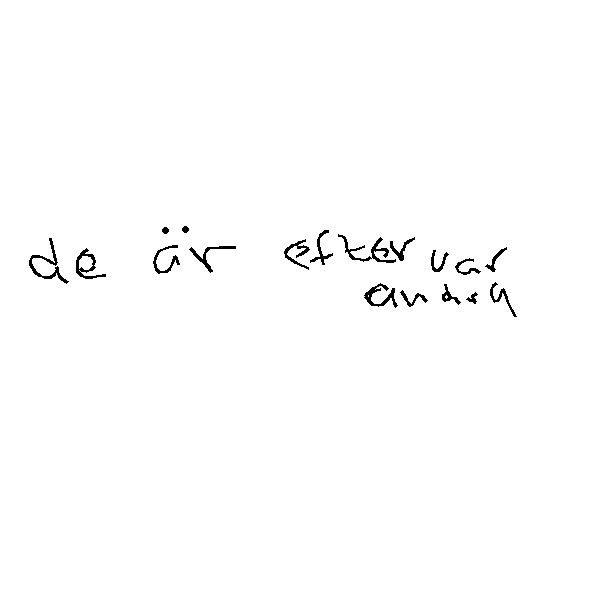 de är efter var
andra